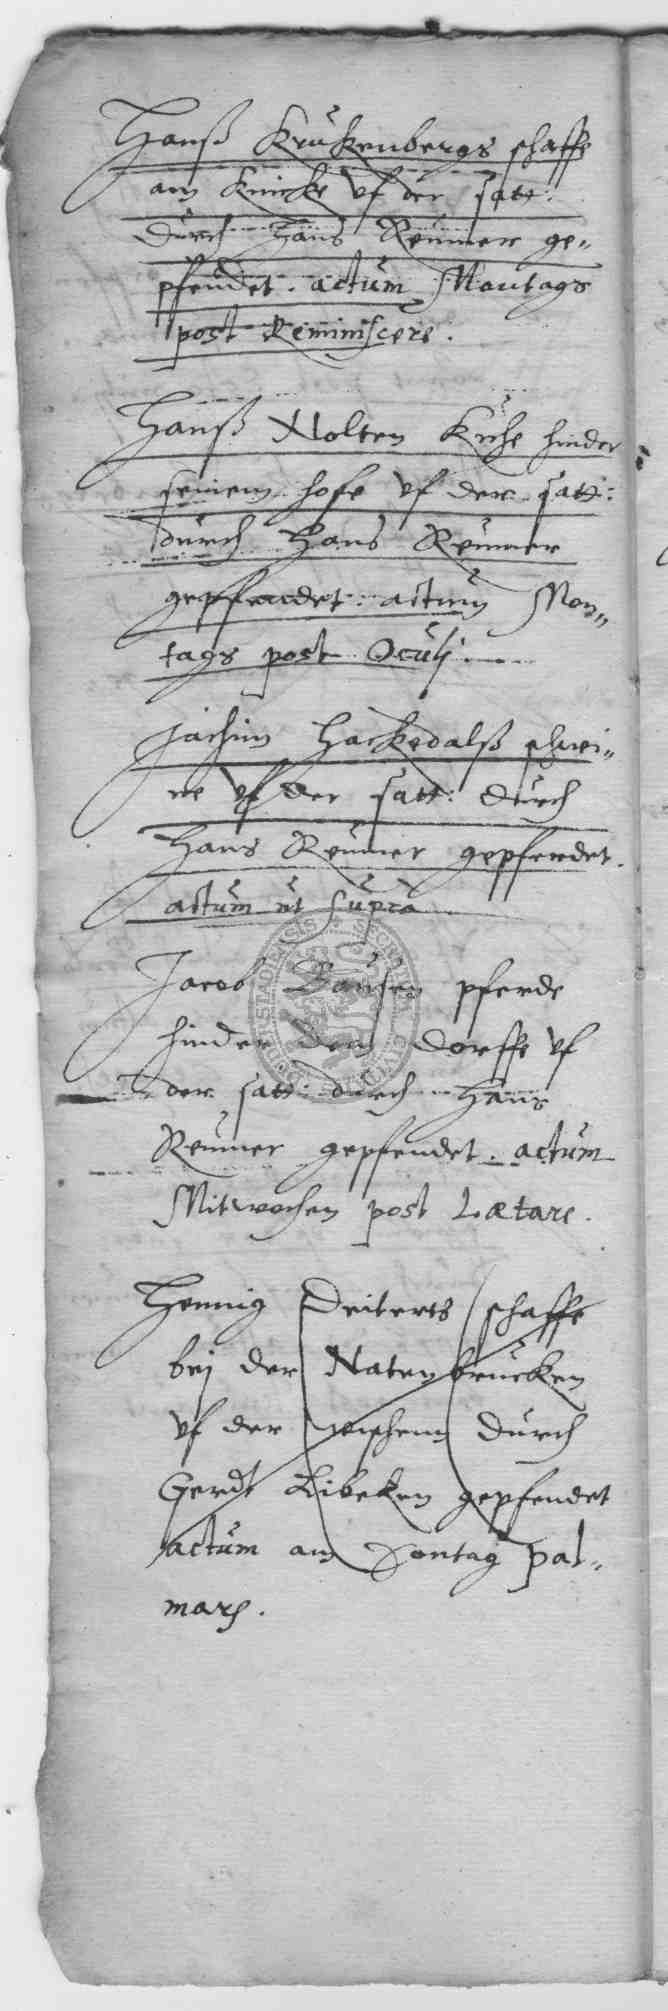 Hanß Krukenbergs schaffe
am Knicke vf der satt.
durch Hans Reumer ge-
pfendet. actum Montags
post Reminiscere.
Hanß Nolten Kuhe hinder
seinem hofe vf der satt:
durch Hans Reumer
gepfendet. actum Mon-
tags post Oculi
Jachim Hackedalß schwei-
ne vf der satt: durch
Hans Reumer gepfendet.
actum ut supra
Jacob Bausen pferde
hinder dem dorffe vf
der satt: durch Hans
Reumer gepfendet. actum
Mitwochen post Lætare.
Hennig Deiterts schaffe
bej der Natenbrucken
vf der wischenn durch
Gerdt Libeken gepfendet
actum am Sontag pal-
marum.